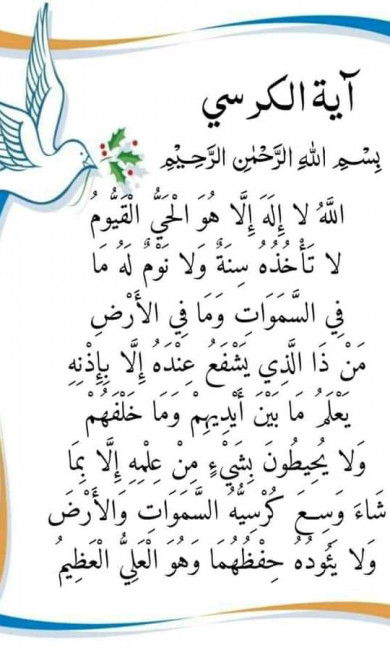 آية الكرسي
بِسْمِ اللهِ الرَّحْمٰنِ الرَّحِيْمِ
اللَّهُ لا إِلَهَ إِلَّا هُوَ الْحَيُّ الْقَيُّومُ
لا تَأْخُذُهُ سِنَةٌ وَلا نَوْمٌ لَهُ مَا
فِي السَّمَوَاتِ وَمَا فِي الأَرْضِ
مَنْ ذَا الَّذِي يَشْفَعُ عِنْدَهُ إِلَّا بِإِذْنِهِ
يَعْلَمُ مَا بَيْنَ أَيْدِيهِمْ وَمَا خَلْفَهُمْ
وَلا يُحِيطُونَ بِشَيْءٍ مِنْ عِلْمِهِ إِلَّا بِمَا
شَاءَ وَسِعَ كُرْسِيُّهُ السَّمَوَاتِ وَالأَرْضَ
وَلا يَئُودُهُ حِفْظُهُمَا وَهُوَ الْعَلِيُّ الْعَظِيمُ